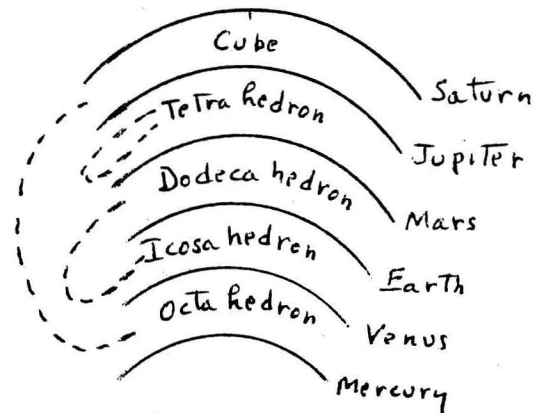 Cube
Saturn
Tetra hedron
Jupiter
Dodeca hedron
Mars
Icosa hedron
Earth
Octa hedron
Venus
Mercury